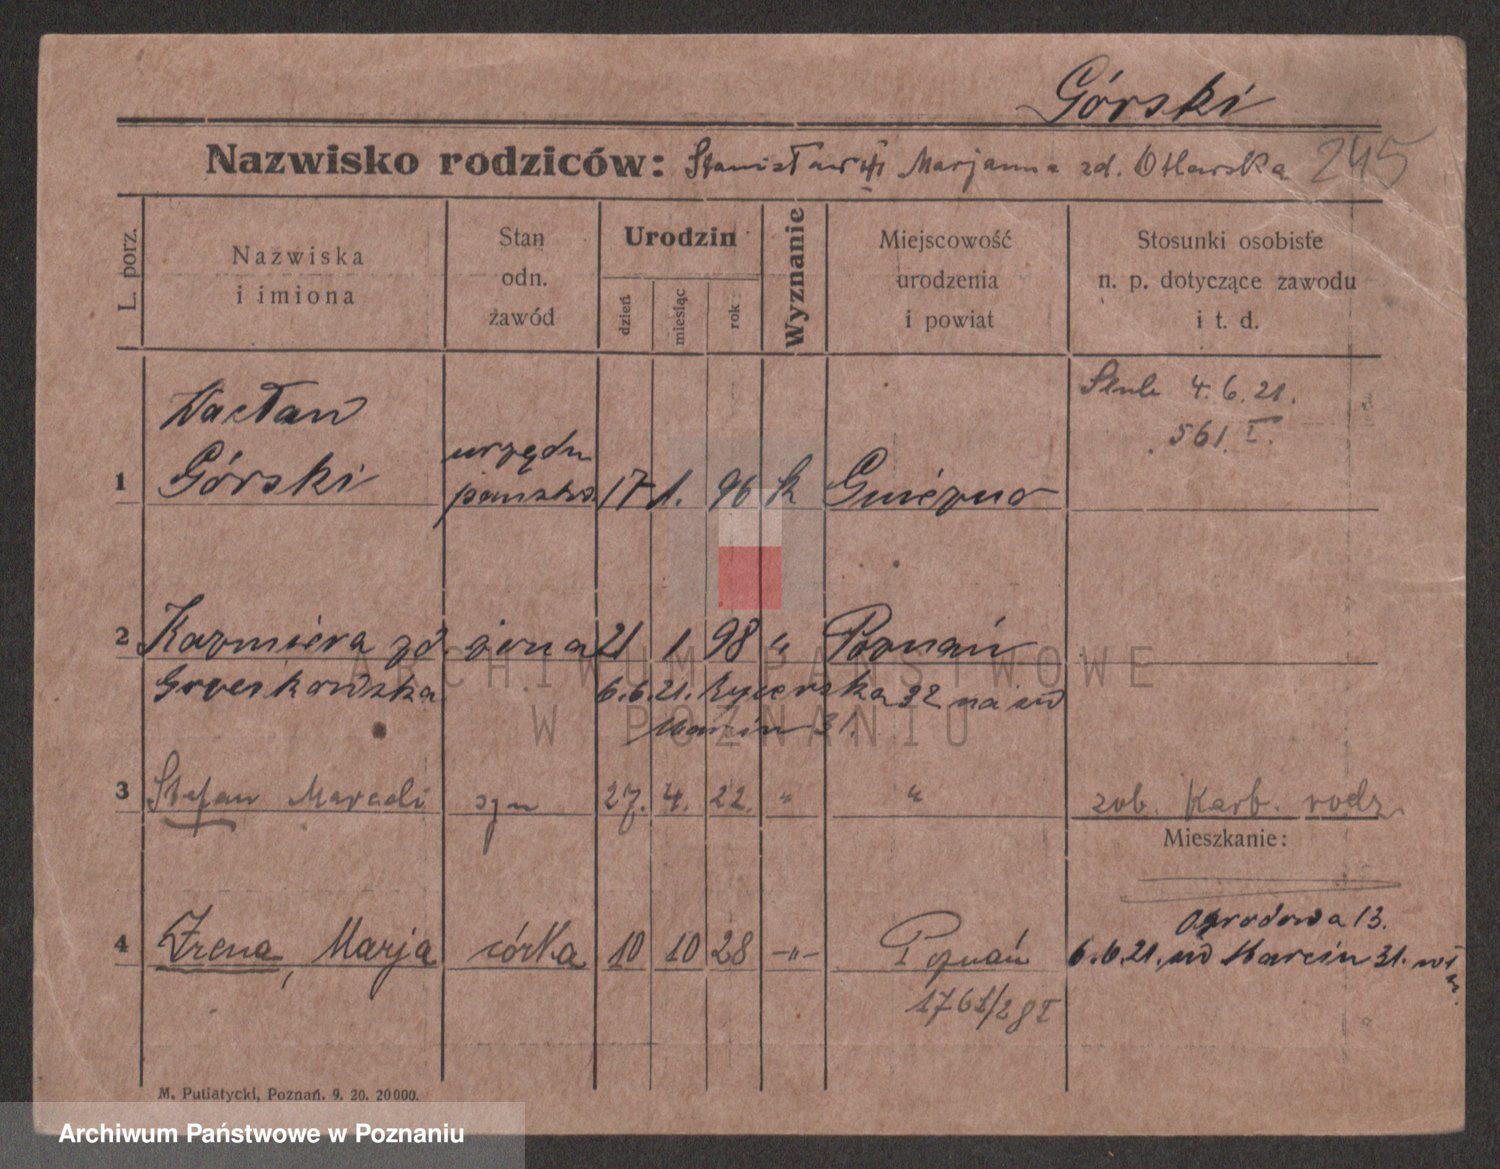 Górski
Nazwisko rodziców: Stanisław i Marjanna zd. Otlewska 245
L. porz.
Nazwiska
i imiona
Stan
odn.
zawód
Urodzin
dzień
miesiąc
rok
Wyznanie
Miejscowość
urodzenia
i powiat
Stosunki osobiste
n. p. dotyczące zawodu
i t. d.
Wacław
1 Górski urzędn państw. 17 1. 96 k Gniezno
Ślub 4.6.21.
561. I.
2 Kazmiera zd. żona 21 1 98 " Poznań
6.6.21. Rycerska 32 na św
Marcin 31.
3 Stefan syn 27. 4. 22. " " zob. Karb. rodz.
Mieszkanie:
4 Irena, Marja córka 10 10 28 -"- Poznań
1761/28 I
Ogrodowa 13.
6.6.21. św Marcin 31.
M. Putiatycki, Poznań. 9. 20. 20000.
ARCHIWUM PAŃSTWOWE
W POZNANIU
Archiwum Państwowe w Poznaniu